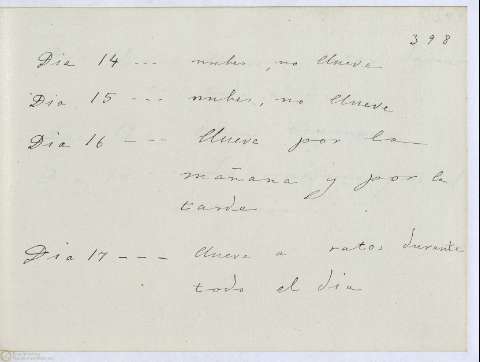 398
Dia 14 --- nubes, no llueve
Dia 15 --- nubes, no llueve
Dia 16 --- llueve por la
mañana y por la
tarde
Dia 17 --- llueve a ratos durante
todo el dia